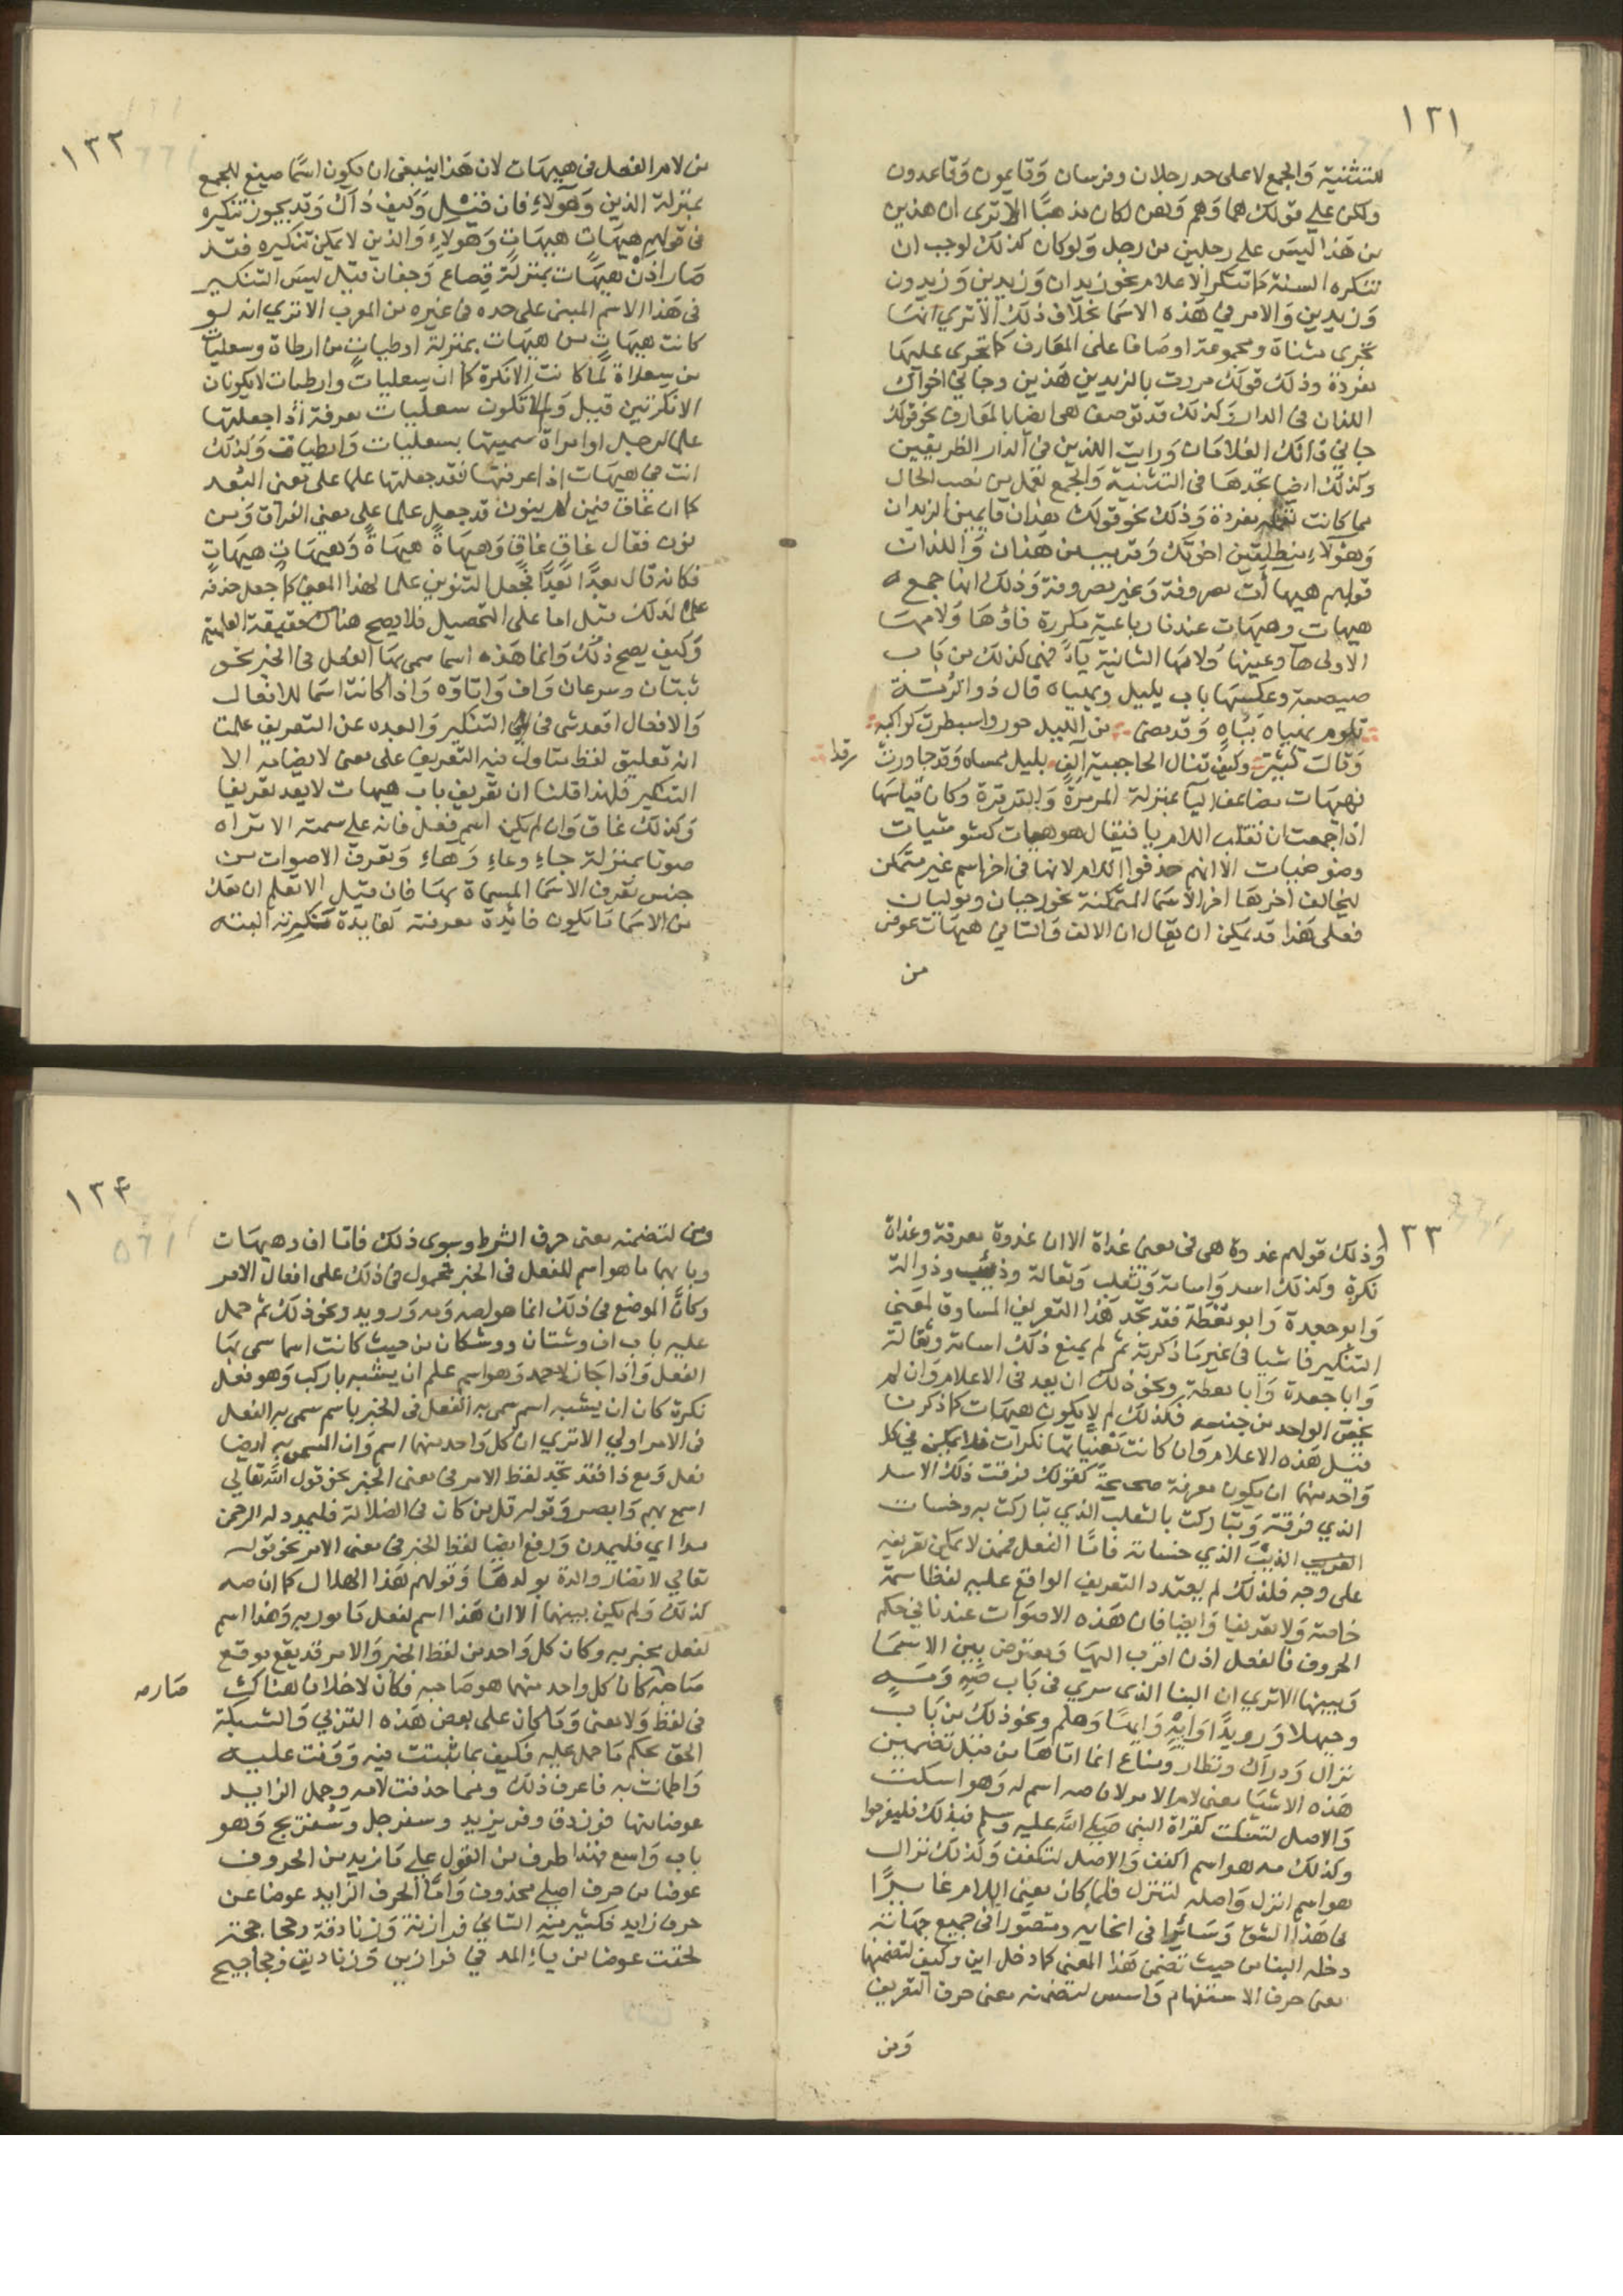 ١٢١
للتثنية والجمع لا على حد رجلان وفرسان وقايمون وقاعدون
ولكن على قولك هما وهم وهن لكان مذهبًا الا ترى ان هذين
من هذا ليس على رجلين من رجل ولو كان كذلك لوجب ان
تنكره السنة كما تنكر الاعلام نحو زيدان وزيدين وزيدون
وزيدين والامر في هذه الاسما بخلاف ذلك الا ترى انها
تجرى مثناة ومجموعة اوصافا على المعارف كما تجرى عليها
مفردة وذلك قولك مررت بالزيدين هذين وجاني اخواك
اللذان في الدار وكذلك قد توصف هي ايضا بالمعارف نحو قولك
جاني ذانك الغلامان ورايت اللذين في الدار الظريفين
وكذلك ايضا تجدها في التثنية والجمع تعمل من نصب الحال
ما كانت تعمله مفردة وذلك نحو قولك هذان قايمين الزيدان
وهؤلاء منطلقين اخوتك وقريب من هذان واللذان
قولهم هيهات مصروفة وغير مصروفة وذلك انها جمع
هيهات وهيهات عندنا رباعية مكررة فاؤها ولامها
الاولى ها وعينها ولامها الثانية ياء فهي كذلك من باب
صيصية وعكسها باب يليل ويهياه قال ذو الرمة
تلوم يهياه بياه وقد مضى من الليل جوز واسبطرت كواكبه
وقال كثير وكيف تنال الحاجبية آلف بليل ممساه وقد جاوزت رقدا
فهيهات مضاعف اليا بمنزلة المرمرة والقرقرة وكان قياسها
اذا جمعت ان تقلب اللام يا فيقال هوهيات كشوشيات
وضوضيات الا انهم حذفوا اللام لانها في اخر اسم غير متمكن
ليخالف اخرها اخر الاسما المتمكنة نحو رحيان وموليان
فعلى هذا قد يمكن ان يقال ان الالف والتا في هيهات عوض
من
١٢٢
من لام الفعل في هيهات لان هذا ينبغي ان يكون اسما صيغ للجمع
بمنزلة الذين وهؤلاء فان قيل وكيف ذاك وقد يجوز تنكيره
في قولهم هيهات هيهات وهؤلاء والذين لا يمكن تنكيره فقد
صار اذن هيهات بمنزلة قصاع وجفان قيل ليس التنكير
في هذا الاسم المبنى على حده في غيره من المعرب الا ترى انه لو
كانت هيهات من هيهات بمنزلة ارطيات من ارطاة وسعليات
من سعلاة لما كانت الا نكرة كما ان سعليات وارطيات لا يكونان
الا نكرتين قيل ولم لا تكون سعليات معرفة اذا جعلتها
علما لرجل او امراة سميتها بسعليات وارطيات وكذلك
انت في هيهات اذا عرفتها فقد جعلتها علما على معنى البعد
كما ان غاق فيمن لم ينون قد جعل علما على معنى الفراق ومن
نون فقال غاق غاق وهيهاة هيهاة وهيهات هيهات
فكانه قال بعدًا بعدًا فجعل التنوين علما لهذا المعنى كما جعل حذفه
علما لذلك قيل اما على التحصيل فلا يصح هناك حقيقة العلمية
وكيف يصح ذلك وانما هذه اسما سمى بها الفعل في الخبر نحو
شتان وسرعان واف واتاوه واذا كانت اسما للافعال
والافعال اقعد شى في التنكير وابعده عن التعريف علمت
انه تعليق لفظ متاول فيه التعريف على معنى لا يضامه الا
التنكير فلهذا قلنا ان تعريف باب هيهات لا يعد تعريفا
وكذلك غاق وان لم يكن اسم فعل فانه على سمته الا تراه
صوتا بمنزلة جاء وعاء وهاء وتعرف الاصوات من
جنس تعرف الاسما المسماة بها فان قيل الا تعلم ان معك
من الاسما ما يكون فائدة معرفته كفايدة تنكيرته البته
١٢٣
وذلك قولهم غدوة هي في معنى غداة الا ان غدوة معرفة وغداة
نكرة وكذلك اسد واسامة وثعلب وثعالة وذئب وذوالة
وابو جعدة وابو معطة فقد تجد هذا التعريف المساوق لمعنى
التنكير فاشيا في غير ما ذكرته ثم لم يمنع ذلك اسامة وثعالة
وابا جعدة وابا معطة ونحو ذلك ان يعد في الاعلام وان لم
يخص الواحد من جنسه فكذلك لم لا يكون هيهات كما ذكرنا
قيل هذه الاعلام وان كانت معنياتها نكرات فلا يمكن في كل
واحد منها ان يكون معرفة صحيحة كقولك فرقت ذلك الاسد
الذي فرقته وتباركت بالثعلب الذي تباركت به وخسات
الذيب الذي خساته فاما الفعل فمما لا يمكن تعريفه
على وجه فلذلك لم يعتدد التعريف الواقع عليه لفظا سمة
خاصة ولا تعريفا وايضا فان هذه الاصوات عندنا في حكم
الحروف فالفعل اذن اقرب اليها ومعترض بين الاسما
وبينها الا ترى ان البنا الذى سرى في باب صه ومه
وحيهلا ورويدا وايه وايها وهلم ونحو ذلك من باب
نزال ودراك ونظار ومناع انما اتاها من قبل تضمين
هذه الاشيا معنى لام الامر لان صه اسم له وهو اسكت
والاصل لتسكت كقراة النبى صلى الله عليه وسلم فبذلك فلتفرحوا
وكذلك مه هو اسم اكفف والاصل لتكفف وكذلك نزال
هو اسم انزل واصله لتنزل فلما كان معنى اللام غابرا
في هذا الشق وسائرا في انحايه ومتصورا في جميع جهاته
دخله البنا من حيث تضمن هذا المعنى كما دخل اين وكيف لتضمنهما
معنى حرف الاستفهام وامس لتضمنه معنى حرف التعريف
ومن
١٢٤
ومن لتضمنه معنى حرف الشرط وسوى ذلك فاما اف وهيهات
وبابهما ما هو اسم للفعل في الخبر فمحمول في ذلك على افعال الامر
وكان الموضع في ذلك انما هو لصه ومه ورويد ونحو ذلك ثم حمل
عليه باب اف وشتان ووشكان من حيث كانت اسما سمى بها
الفعل واذا جاز لاحمد وهو اسم علم ان يشبه باركب وهو فعل
نكرة كان ان يشبه اسم سمى به الفعل في الخبر باسم سمى به الفعل
في الامر اولى الا ترى ان كل واحد منهما اسم وان المسمى به ايضا
فعل ومع ذا فقد تجد لفظ الامر في معنى الخبر نحو قول الله تعالى
اسمع بهم وابصر وقوله قل من كان في الضلالة فليمدد له الرحمن
مدا اي فليمدن ووقع ايضا لفظ الخبر في معنى الامر نحو قوله
تعالى لا تضار والدة بولدها وقولهم هذا الهلال كما ان صه
كذلك ولم يكن بينهما الا ان هذا اسم لفعل مامور به وهذا اسم
لفعل مخبر به وكان كل واحد من لفظ الخبر والامر قد يقع موقع
صاحبه كان كل واحد منهما هو صاحبه فكان لا خلاف هناك
صار
في لفظ ولا معنى وما كان على بعض هذه القربى والشبكة
الحق بحكم ما حمل عليه فكيف بما ثبتت فيه ووفت عليه
واطمانت به فاعرف ذلك ومما حذفت لامه وجعل الزايد
عوضا منها فرزدق وفريزيد وسفرجل وسفيريج وهو
باب واسع فهذا طرف من القول على ما زيد من الحروف
عوضا من حرف اصلى محذوف واما الحرف الزايد عوضا عن
حرف زايد فكثير منه التا في فرازنة وزنادقة وجحاجحة
لحقت عوضا من ياء المد في فرازين وزناديق وجحاجيح